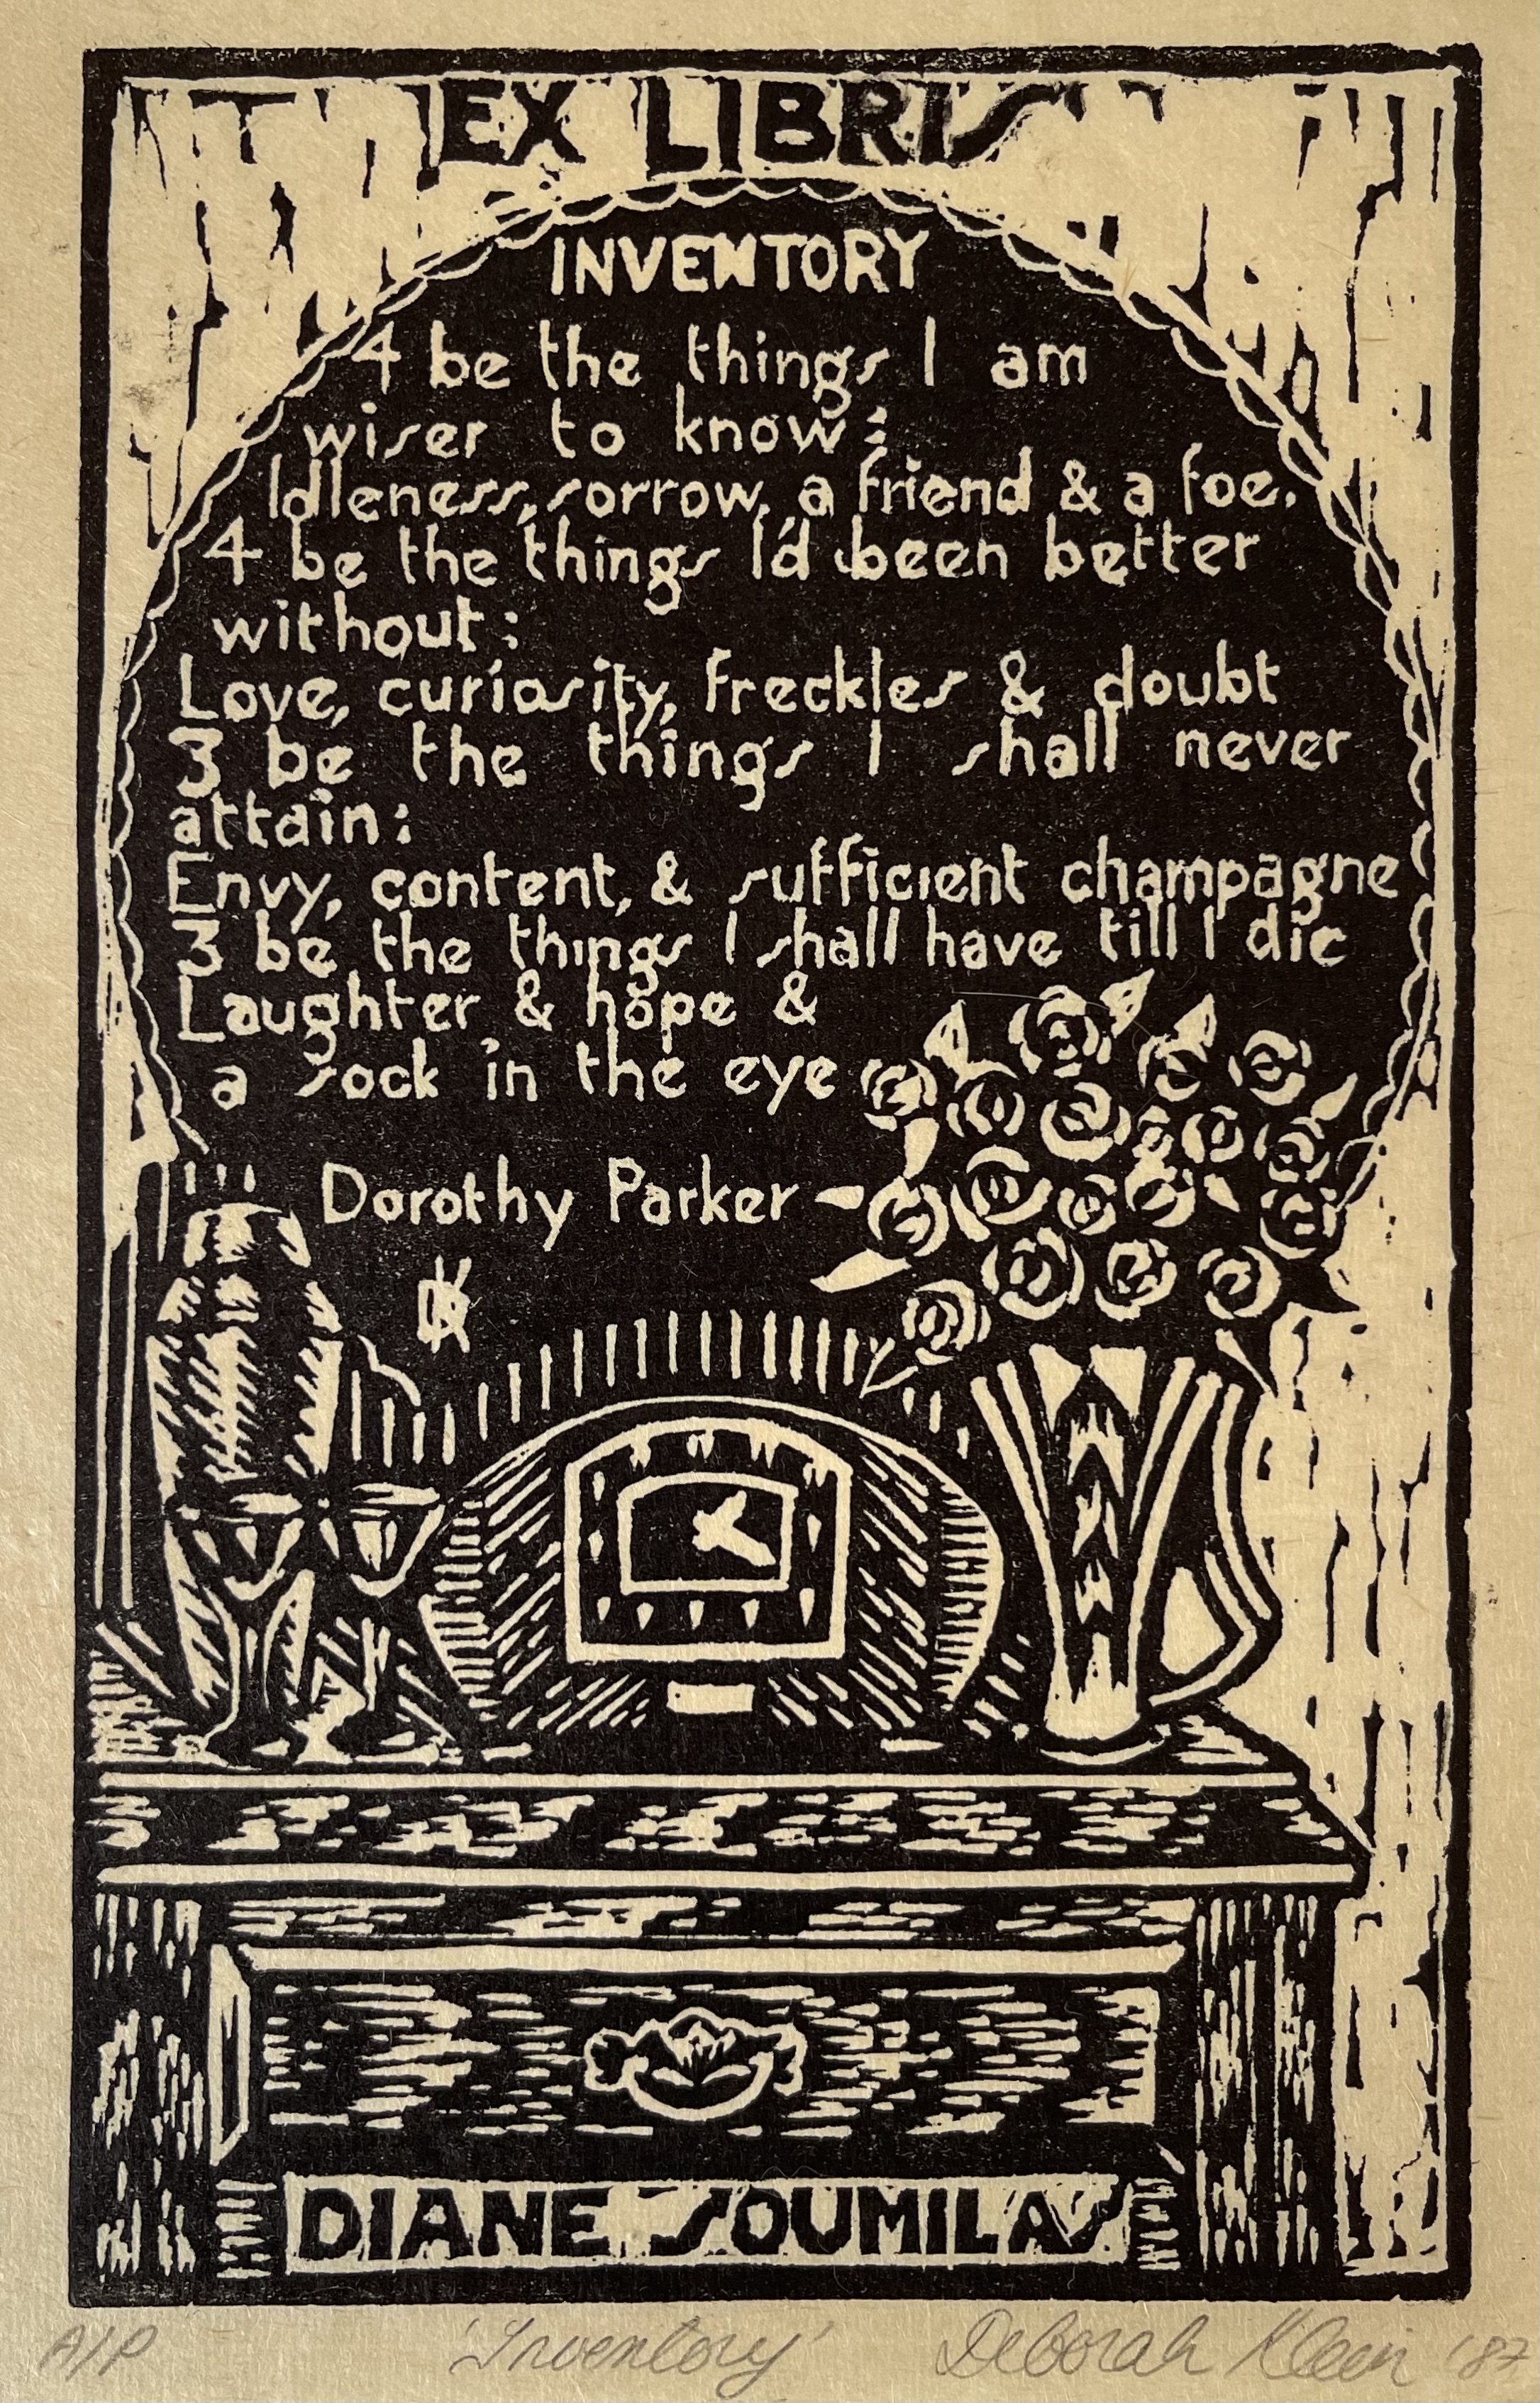 EX LIBRIS
INVENTORY
4 be the things I am
wiser to know:
Idleness, sorrow, a friend & a foe.
4 be the things I'd been better
without:
Love, curiosity, freckles & doubt
3 be the things I shall never
attain:
Envy, content, & sufficient champagne
3 be the things I shall have till I die
Laughter & hope &
a sock in the eye
Dorothy Parker
DK
DIANE SOUMILAS
A/P 'Inventory' Deborah Klein '87